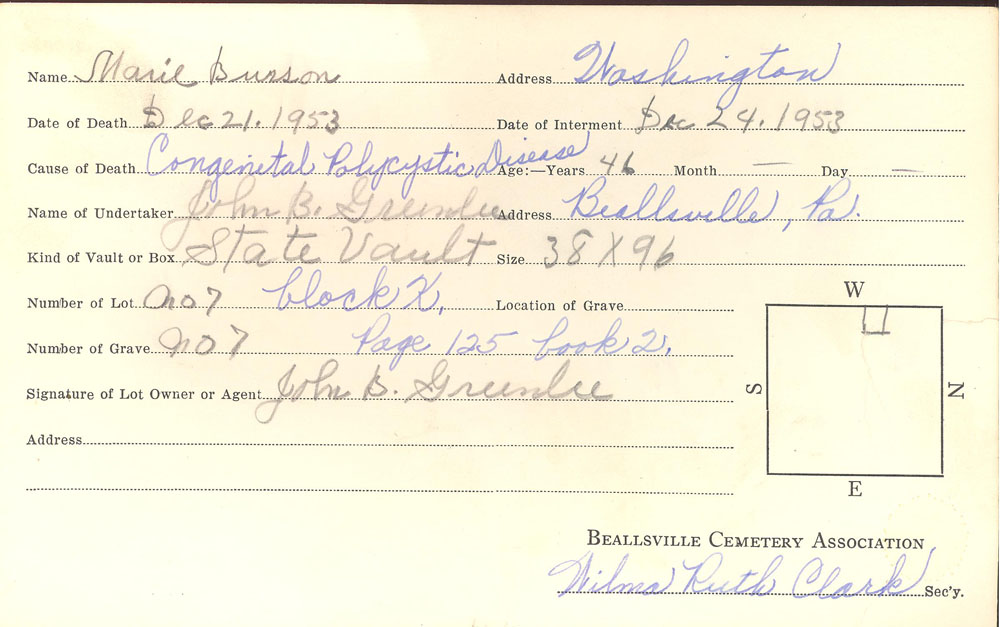 Name Marie Burson Address Washington
Date of Death Dec 21. 1953 Date of Interment Dec 24. 1953
Cause of Death Congenital Polycystic Disease Age:—Years 46 Month — Day —
Name of Undertaker John B. Greenlee Address Beallsville, Pa.
Kind of Vault or Box State Vault Size 38 X 96
Number of Lot no 7 block K, Location of Grave
Number of Grave no 7 Page 125 book 2.
Signature of Lot Owner or Agent John B. Greenlee
Address
W
S N
E
BEALLSVILLE CEMETERY ASSOCIATION
Wilma Ruth Clark Sec'y.